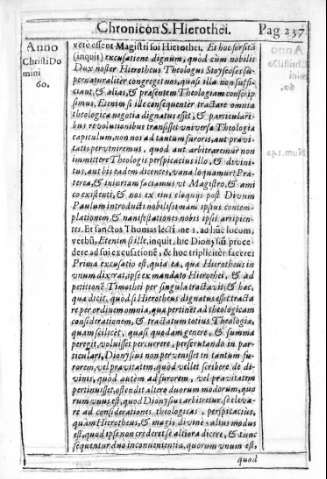 Chronicon S. Hierothei. Pag 237
Anno
Christi Do
mini
60.
vere esset Magistri sui Hierothei, Et hoc forsitã
(inquit) excusatione dignum, quod cùm nobilis
Dux noster Hierotheus Theologus Stoycheoses su-
pernaturaliter congreget nos, quasi illa non suffi-
ciant, & alias, & præsentem Theologiam conscrip-
simus. Etenim si ille consequenter tractare omnia
theologica negotia dignatus esset, & particulari-
bus revolutionibus transisset universa Theologia
capitulum, non nos ad tantum furoris, aut pravi-
tatis pervenimus, quod aut arbitraremur non
immittere Theologis perspicacius illo, & divini-
tus, aut bis eadem dicentes, vana loquamur: Præ-
terea, & iniuriam faciamus vt Magistro, & ami
co existenti, & nos ex eius eloquijs post Divum
Paulum introducti nobilissimam ipsius contem-
plationem & manifestationes nobis ipsi arripien-
tes. Et sanctus Thomas lect. ne 1. ad hũc locum,
verbũ, Etenim si ille, inquit, hic Dionysiũ proce-
dere ad sui excusationẽ, & hoc tripliciter faceret
Prima excusatio est, quia ea, qua Hierotheus in
vnum dixerat, ipse ex mandato Hierothei, & ad
petitionẽ Timothei per singula tractavit; & hæc,
qua dicit, quod si Hierotheus dignatus esset tracta
re per ordinem omnia, qua pertinẽt ad theologicam
considerationem, & tractatum totius Theologia,
quam scilicet, quasi quodam genere, & summa
peregit, voluisset percurrere, perscrutando in par-
ticulari, Dionysius non pervenisset in tantum fu-
rorem, vel pravitatem, quòd vellet scribere de di-
vinis, quòd autem ad furorem, vel pravitatem
pertinuisset, ostendit altero duorum modorum, quo
rum vnus est, quod Dionysius arbitretur se eleva-
re ad considerationes theologicas, perspicacius,
quàm Hierotheus, & magis divine: alius modus
est, quod ipse non crederet se altiora dicere, & tunc
sequentur duo inconvenientia, quorum vnum est,
quod